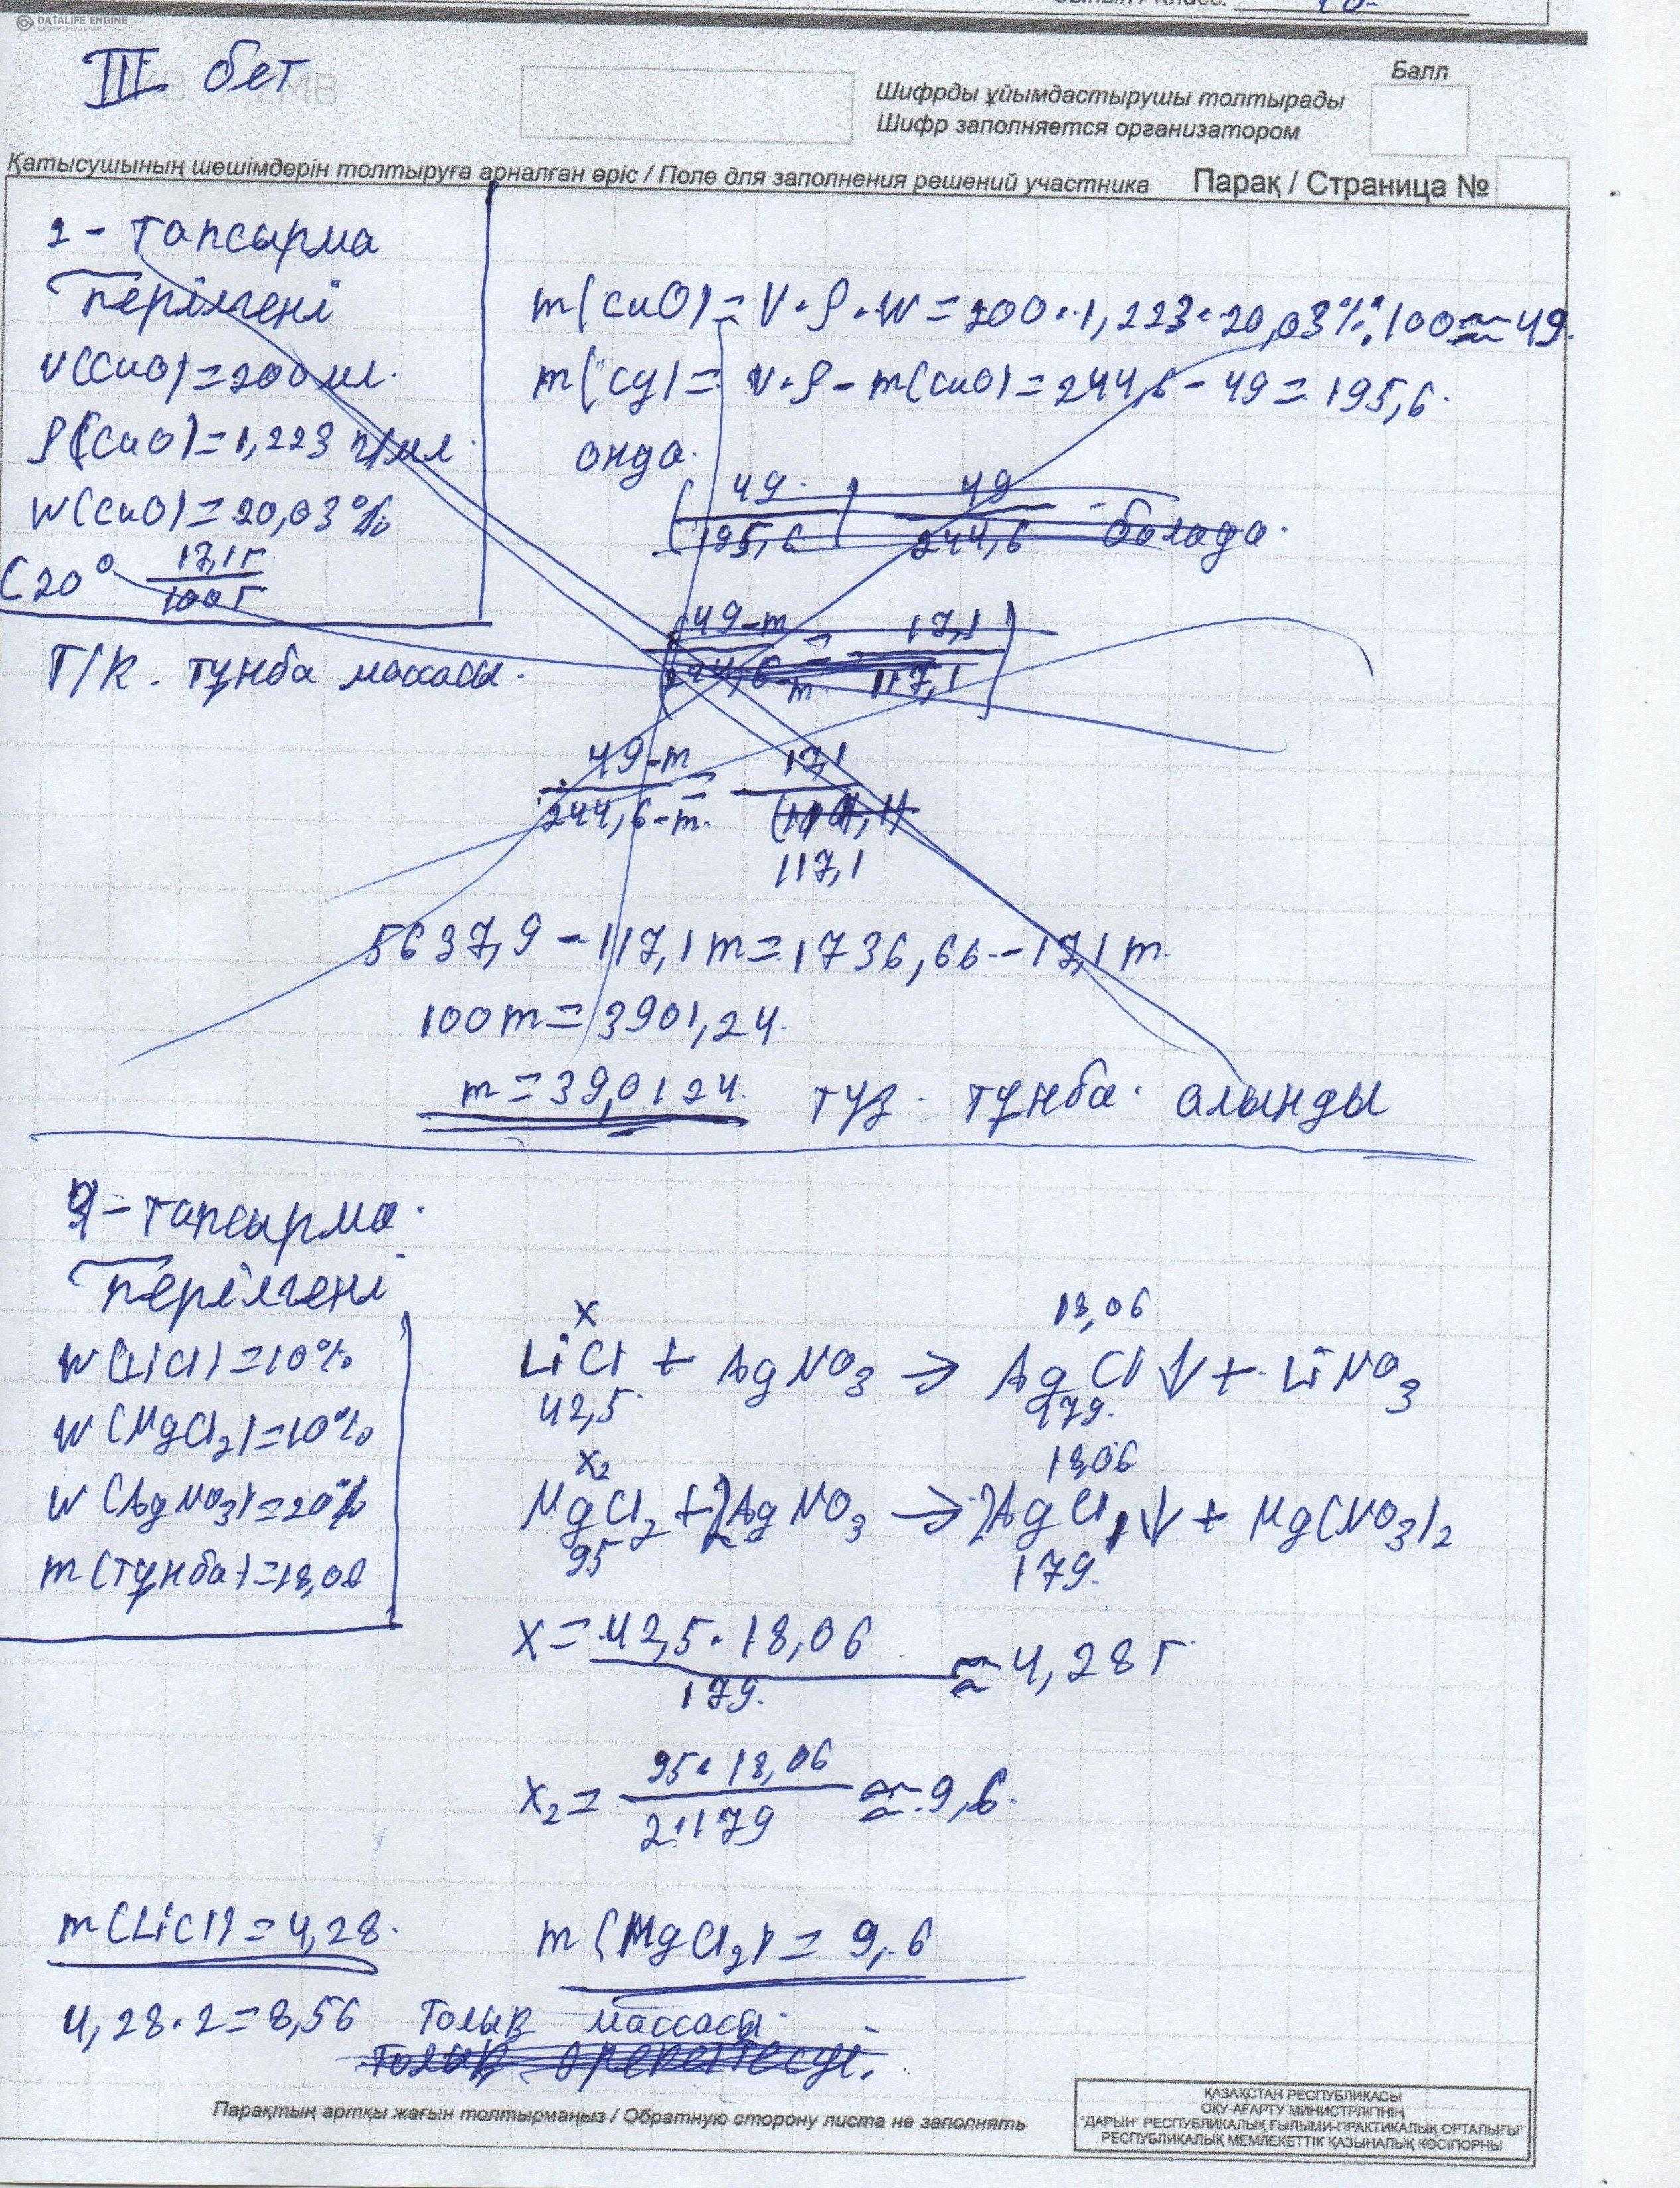 DATALIFE ENGINE
III бет
Шифрды ұйымдастырушы толтырады
Шифр заполняется организатором
Балл
Қатысушының шешімдерін толтыруға арналған өріс / Поле для заполнения решений участника
Парақ / Страница №
1 - тапсырма
Берілгені
V(CuO) = 200 мл.
ρ(CuO) = 1,223 г/мл.
W(CuO) = 20,03%
C20° 17,1г/100г
Т/к. тұнба массасы.
m(CuO) = V·ρ·W = 200·1,223·20,03%:100 ≈ 49.
m(су) = V·ρ - m(CuO) = 244,6 - 49 = 195,6.
онда.
49/195,6 49/244,6 - болада.
49-m/244,6-m = 17,1/117,1
49-m/244,6-m. = 17,1/
117,1
5637,9 - 117,1m = 1736,66 - 17,1m.
100m = 3901,24.
m = 39,0124. тұз - тұнба. алынды
9 - тапсырма.
Берілгені
W(LiCl) = 10%
W(MgCl2) = 10%
W(AgNO3) = 20%
m(тұнба) = 18,06
x 18,06
LiCl + AgNO3 → AgCl↓ + LiNO3
42,5. 179.
x2 18,06
MgCl2 + 2AgNO3 → 2AgCl↓ + Mg(NO3)2
95 179.
x = 42,5·18,06/179. ≈ 4,28г
x2 = 95·18,06/2·179 ≈ 9,6.
m(LiCl) = 4,28. m(MgCl2) = 9,6
4,28·2 = 8,56 Толық массасы.
Парақтың артқы жағын толтырмаңыз / Обратную сторону листа не заполнять
ҚАЗАҚСТАН РЕСПУБЛИКАСЫ
ОҚУ-АҒАРТУ МИНИСТРЛІГІНІҢ
"ДАРЫН" РЕСПУБЛИКАЛЫҚ ҒЫЛЫМИ-ПРАКТИКАЛЫҚ ОРТАЛЫҒЫ"
РЕСПУБЛИКАЛЫҚ МЕМЛЕКЕТТІК ҚАЗЫНАЛЫҚ КӘСІПОРНЫ